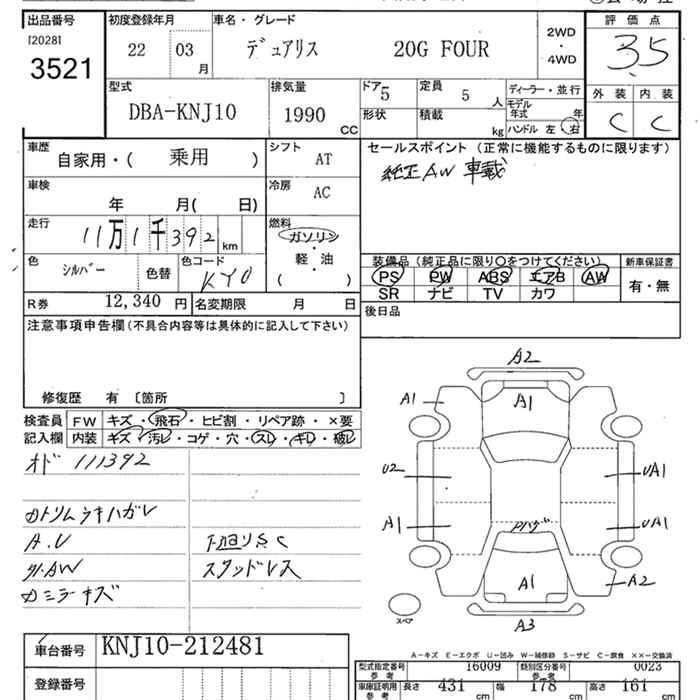 出品番号 初度登録年月 車名・グレード 評価点
[2028]
3521
22 03 月 デュアリス 20G FOUR 2WD ・ 4WD 3.5
型式 排気量 ドア 5 定員 5 人 ディーラー・並行 外装 内装
DBA-KNJ10 1990 CC 形状 積載 kg モデル年式 年 C C
ハンドル 左・右
車歴 自家用・( 乗用 ) シフト AT セールスポイント (正常に機能するものに限ります)
純正AW 車載
車検 年 月( 日) 冷房 AC
走行 11万1千392 km 燃料 ガソリン・軽・油 ( )
色 シルバー 色替 色コード KY0
装備品 (純正品に限り○をつけてください) 新車保証書
PS PW ABS エアB AW 有・無
SR ナビ TV カワ
R券 12,340 円 名変期限 月 日 後日品
注意事項申告欄 (不具合内容等は具体的に記入して下さい)
修復歴 有 〔箇所 〕
検査員記入欄 FW キズ・飛石・ヒビ割・リペア跡・×要
内装 キズ・汚レ・コゲ・穴・スレ・キレ・破レ
オド 111392
内トリムラキハガレ
A.U 下廻りS C
外.AW スタッドレス
カミラーキズ
A2
A1 A1
U2 UA1
A1 Pハゲ UA1
A1 A2
スペア A3
A-キズ E-エクボ U-凹み W-補修跡 S-サビ C-腐食 ××-交換済
車台番号 KNJ10-212481
型式指定番号 参考 16009 類別区分番号 参考 0023
登録番号 車庫証明用 参考 長さ 431 cm 幅 178 cm 高さ 161 cm